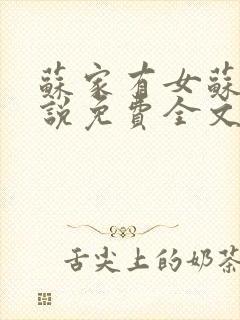 蘇家有女蘇
說免費全文
舌尖上的奶茶